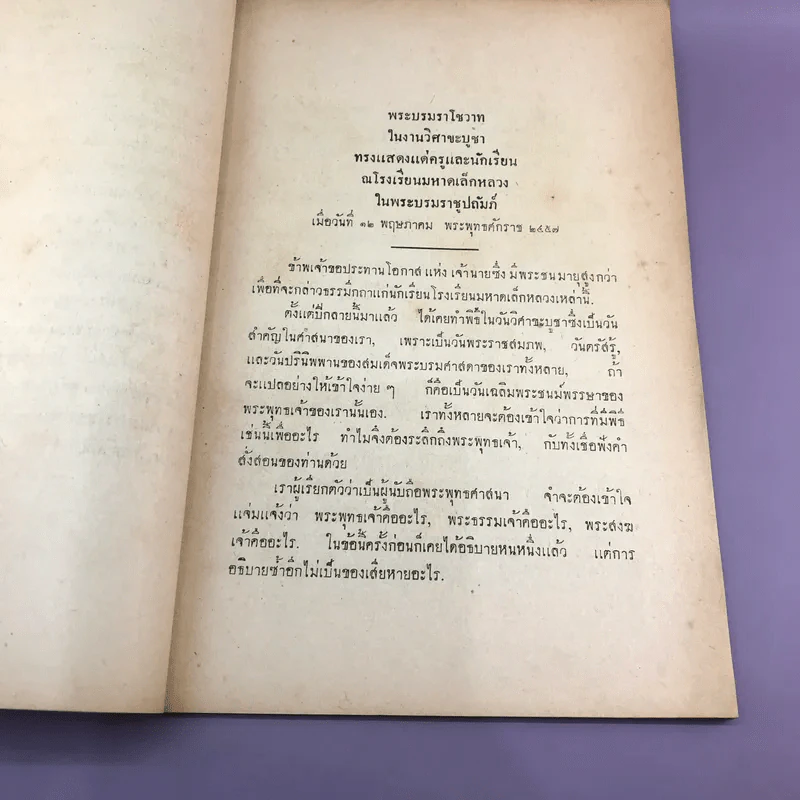 พระบรมราโชวาท
ในงานวิศาขะบูชา
ทรงแสดงแด่ครูและนักเรียน
ณโรงเรียนมหาดเล็กหลวง
ในพระบรมราชูปถัมภ์
เมื่อวันที่ ๑๒ พฤษภาคม พระพุทธศักราช ๒๔๕๗
ข้าพเจ้าขอประทานโอกาส แห่ง เจ้านายซึ่ง มีพระชนมายุสูงกว่า
เพื่อที่จะกล่าวธรรมิกถาแก่นักเรียนโรงเรียนมหาดเล็กหลวงเหล่านี้.
ตั้งแต่ปีกลายนี้มาแล้ว ได้เคยทำพิธีในวันวิศาขะบูชาซึ่งเป็นวัน
สำคัญในศาสนาของเรา, เพราะเป็นวันพระราชสมภพ, วันตรัสรู้,
และวันปรินิพพานของสมเด็จพระบรมศาสดาของเราทั้งหลาย, ถ้า
จะแปลอย่างให้เข้าใจง่าย ๆ ก็คือเป็นวันเฉลิมพระชนม์พรรษาของ
พระพุทธเจ้าของเรานั้นเอง. เราทั้งหลายจะต้องเข้าใจว่าการที่มีพิธี
เช่นนี้เพื่ออะไร ทำไมจึงต้องระลึกถึงพระพุทธเจ้า, กับทั้งเชื่อฟังคำ
สั่งสอนของท่านด้วย
เราผู้เรียกตัวว่าเป็นผู้นับถือพระพุทธศาสนา จำจะต้องเข้าใจ
แจ่มแจ้งว่า พระพุทธเจ้าคืออะไร, พระธรรมเจ้าคืออะไร, พระสงฆ
เจ้าคืออะไร. ในข้อนี้ครั้งก่อนก็เคยได้อธิบายหนหนึ่งแล้ว แต่การ
อธิบายซ้ำอีกไม่เป็นของเสียหายอะไร.